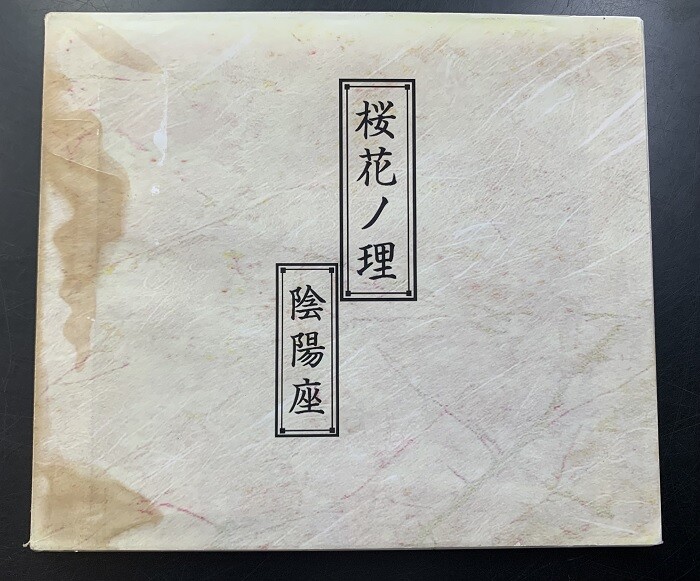 桜花ノ理
陰陽座